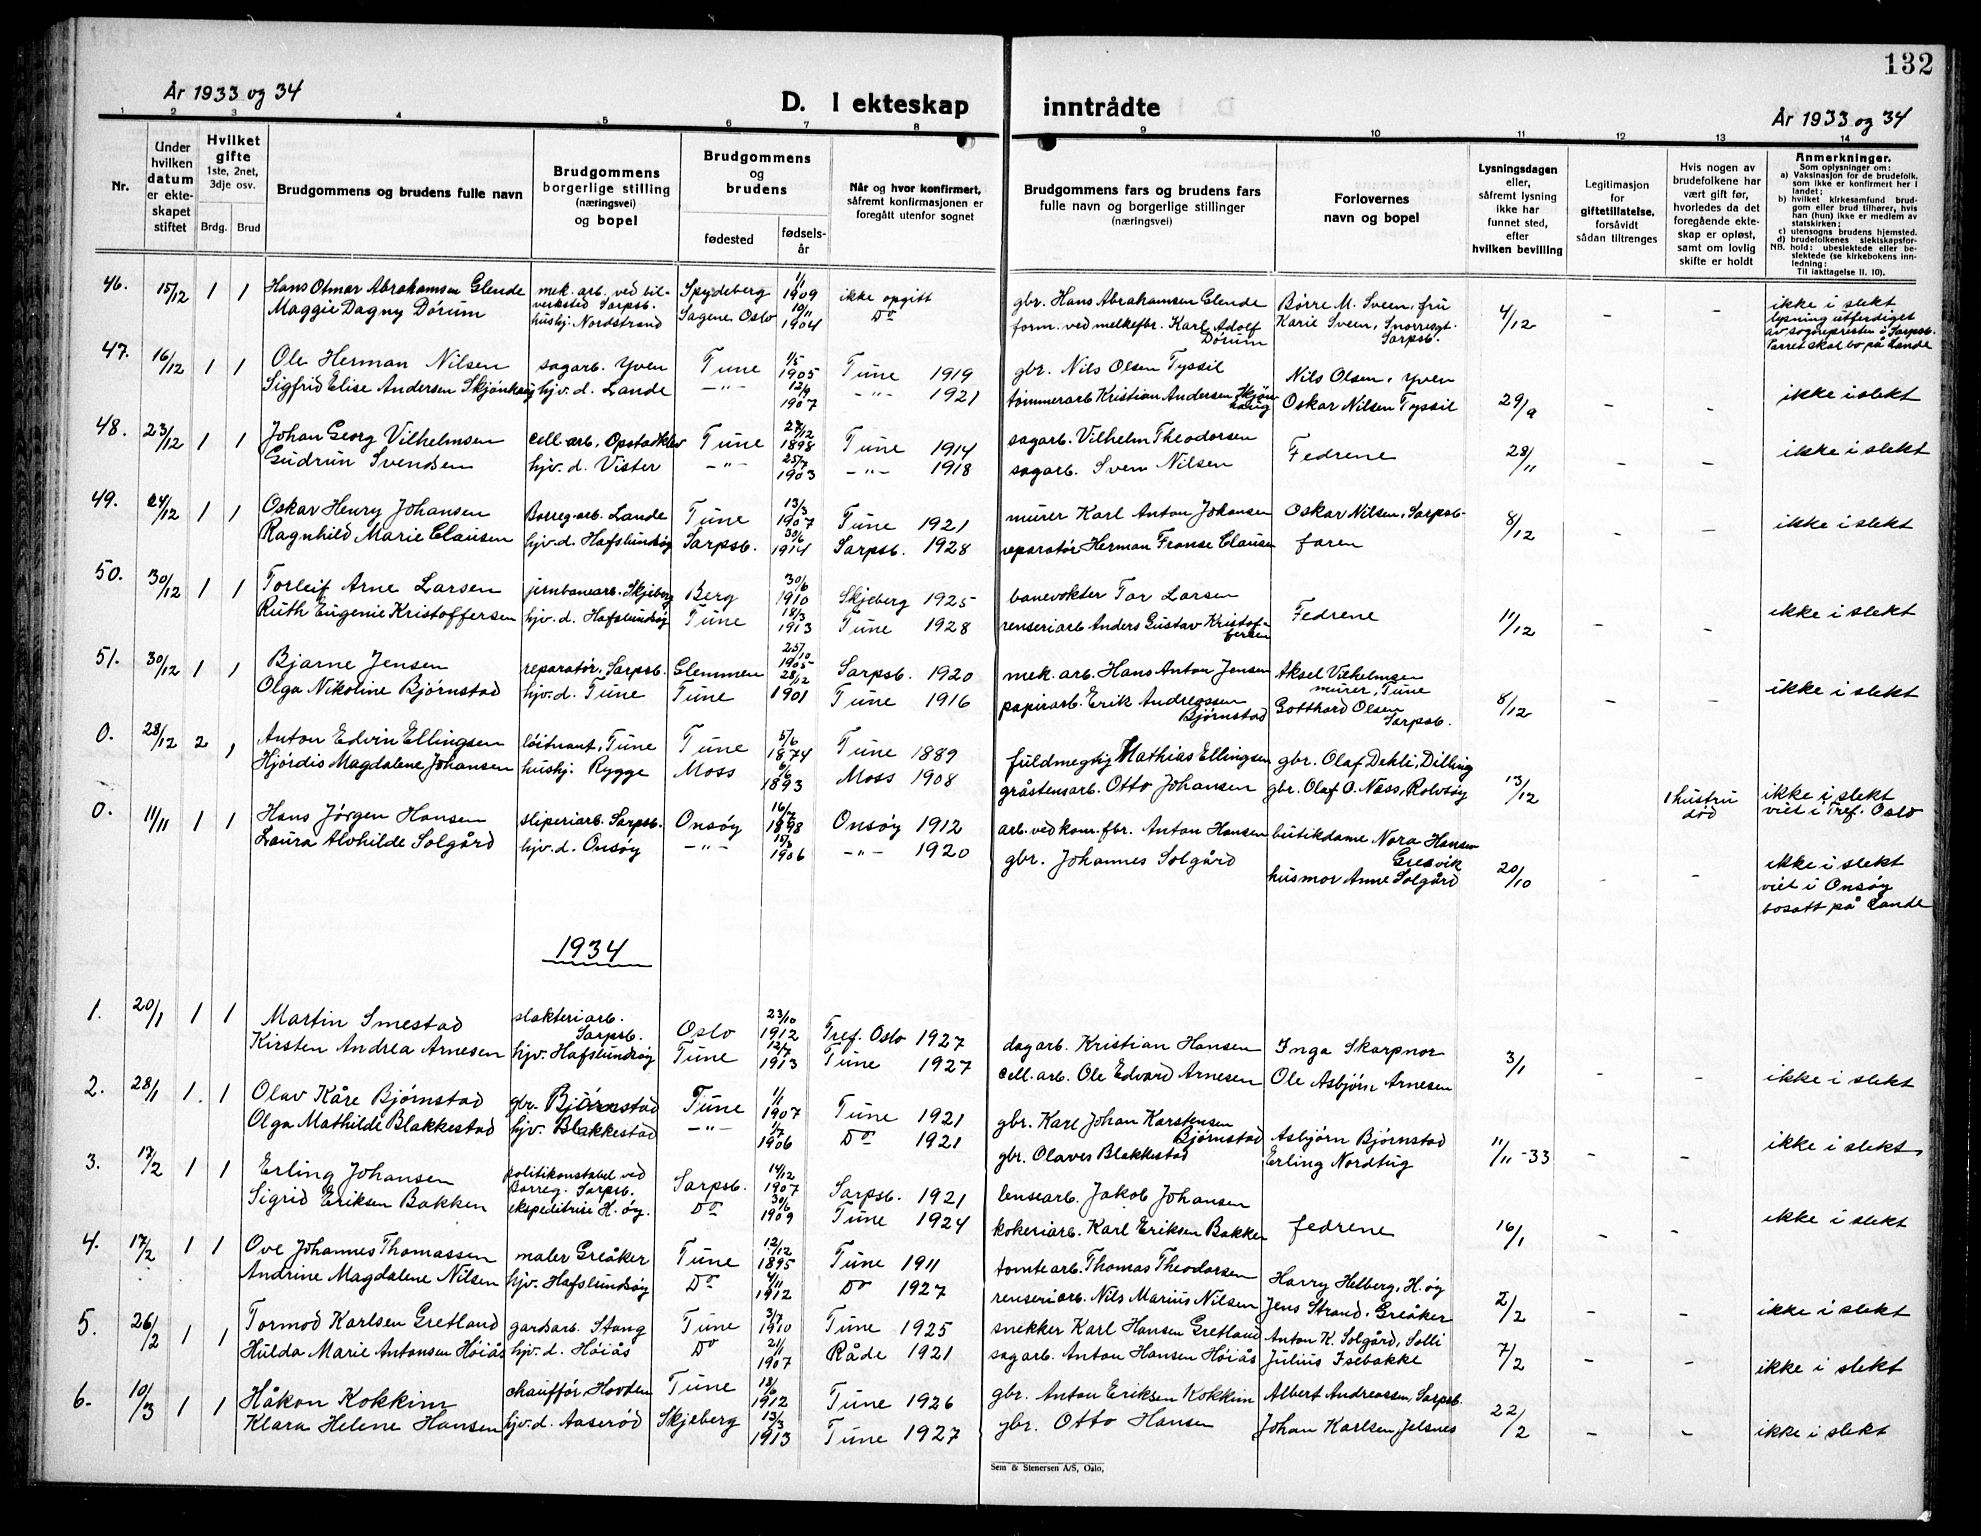 132
År 1933 og 34
D. I ekteskap inntrådte
År 1933 og 34
1 2 3 4 5 6 7 8 9 10 11 12 13 14
Nr.
Under hvilken datum er ekteskapet stiftet
Hvilket gifte 1ste, 2net, 3dje osv.
Brdg. Brud
Brudgommens og brudens fulle navn
Brudgommens borgerlige stilling (næringsvei) og bopel
Brudgommens og brudens
fødested fødselsår
Når og hvor konfirmert, såfremt konfirmasjonen er foregått utenfor sognet
Brudgommens fars og brudens fars fulle navn og borgerlige stillinger (næringsvei)
Forlovernes navn og bopel
Lysningsdagen eller, såfremt lysning ikke har funnet sted, efter hvilken bevilling
Legitimasjon for giftetillatelse, forsåvidt sådan tiltrenges
Hvis nogen av brudefolkene har vært gift før, hvorledes da det foregående ekteskap er opløst, samt om lovlig skifte er holdt
Anmerkninger.
Som oplysninger om:
a) Vaksinasjon for de brudefolk, som ikke er konfirmert her i landet;
b) hvilket kirkesamfund brudgom eller brud tilhører, hvis han (hun) ikke er medlem av statskirken;
c) utensogns brudens hjemsted.
d) brudefolkenes slektskapsforhold: ubeslektede eller beslektede (se kirkebokens innledning:
NB. Til iakttagelse II. 10).
46. 15/12 1 1 Hans Otmar Abrahamsen Glende mek. arb. ved bilverksted Sarpsb. Spydeberg 1/1 1909 ikke opgitt gbr. Hans Abrahamsen Glende Børre M. Sveen, fru 4/12 - - ikke i slekt
Maggie Dagny Dørum hushj. Nordstrand Sagene, Oslo 10/11 1904 Do form. ved melkefbr. Karl Adolf Dørum Karie Sveen, Snorresgt. Sarpsb. lysning utferdiget av sognepresten i Sarpsb. Parret skal bo på Lande
47. 16/12 1 1 Ole Herman Nilsen sagarb. Yven Tune 1/5 1905 Tune 1919 gbr. Nils Olsen Tyssil Nils Olsen, Yven 29/9 - - ikke i slekt
Sigfrid Elise Andersen Skjønhaug hjv. d. Lande -"- 12/9 1907 -"- 1921 tømmerarb Kristian Andersen Skjønhaug Oskar Nilsen Tyssil
48. 23/12 1 1 Johan Georg Vilhelmsen cell. arb. Opstadklev Tune 27/12 1898 Tune 1914 sagarb. Vilhelm Theodorsen Fedrene 28/11 - - ikke i slekt
Gudrun Svendsen hjv. d. Vister -"- 25/7 1903 -"- 1918 sagarb. Sven Nilsen
49. 24/12 1 1 Oskar Henry Johansen Borreg. arb. Lande Tune 13/3 1907 Tune 1921 murer Karl Anton Johansen Oskar Nilsen, Sarpsb. 8/12 - - ikke i slekt
Ragnhild Marie Clausen hjv. d. Hafslundsøy Sarpsb. 30/6 1914 Sarpsb. 1928 reparatør Herman Franse Clausen faren
50. 30/12 1 1 Torleif Arne Larsen jernbanearb. Skjeberg Berg 30/6 1910 Skjeberg 1925 banevokter Tor Larsen Fedrene 11/12 - - ikke i slekt
Ruth Eugenie Kristoffersen hjv. d. Hafslundsøy Tune 18/3 1913 Tune 1928 renseriarb Anders Gustav Kristoffersen
51. 30/12 1 1 Bjarne Jensen reparatør, Sarpsb. Glemmen 25/10 1905 Sarpsb. 1920 mek. arb. Hans Anton Jensen Aksel Vilhelmsen murer, Tune 8/12 - - ikke i slekt
Olga Nikoline Bjørnstad hjv. d. Tune Tune 28/12 1901 Tune 1916 papirarb. Erik Andreassen Bjørnstad Gotthard Olsen Sarpsb.
0. 28/12 2 1 Anton Edvin Ellingsen løitnant, Tune Tune 5/6 1874 Tune 1889 fuldmegtig Mathias Ellingsen gbr. Olaf Dehli, Dilling 13/12 1 hustru død ikke i slekt
Hjørdis Magdalene Johansen hushj. Rygge Moss 6/6 1893 Moss 1908 gråstensarb. Otto Johansen gbr. Olaf O. Næss, Rolvsøy viet i Tref. Oslo
0. 11/11 1 1 Hans Jørgen Hansen sliperiarb. Sarpsb. Onsøy 1898 Onsøy 1912 arb. ved konr. fbr. Anton Hansen butikdame Nora Hansen Gresvik 20/10 - - ikke i slekt
Laura Alvhilde Solgård hjv. d. Onsøy -"- 1906 -"- 1920 gbr. Johannes Solgård husmor Anne Solgård viet i Onsøy bosatt på Lande
1934
1. 20/1 1 1 Martin Smestad slakteriarb. Sarpsb. Oslo 23/10 1912 Tref. Oslo 1927 dagarb. Kristian Hansen Inga Skarpnor 3/1 - - ikke i slekt
Kirsten Andrea Arnesen hjv. Hafslundsøy Tune 12/7 1913 Tune 1927 cell. arb. Ole Edvard Arnesen Ole Asbjørn Arnesen
2. 28/1 1 1 Olav Kåre Bjørnstad gbr. Bjørnstad Tune 1/1 1907 Tune 1921 gbr. Karl Johan Karstensen Bjørnstad Asbjørn Bjørnstad 11/11-33 - - ikke i slekt
Olga Mathilde Blakkestad hjv. Blakkestad -"- 1/7 1906 Do 1921 gbr. Olaves Blakkestad Erling Nordtug
3. 17/2 1 1 Erling Johansen politikonstabel ved Borreg. Sarpsb. Sarpsb. 14/12 1907 Sarpsb. 1921 lensearb. Jakob Johansen fedrene 16/1 - - ikke i slekt
Sigrid Eriksen Bakken ekspeditrise H.øy. Do 30/6 1909 Tune 1924 kokeriarb. Karl Eriksen Bakken
4. 17/2 1 1 Ove Johannes Thomassen maler Greåker Tune 12/12 1895 Tune 1911 tomtearb. Thomas Theodorsen Harry Helberg, H.øy 2/2 - - ikke i slekt
Andrine Magdalene Nilsen hjv. Hafslundsøy Do 4/11 1912 Do 1927 renseriarb. Nils Marius Nilsen Jens Strand, Greåker
5. 26/2 1 1 Tormod Karlsen Gretland gardsarb. Stang Tune 3/7 1910 Tune 1925 snekker Karl Hansen Gretland Anton K. Solgård, Solli 7/2 - - ikke i slekt
Hulda Marie Antonsen Høiås hjv. d. Høiås Do 21/1 1907 Råde 1921 sagarb. Anton Hansen Høiås Julius Isebakke
6. 10/3 1 1 Håkon Kokkim chauffør, Hovden Tune 1912 Tune 1926 gbr. Anton Eriksen Kokkim Albert Andreassen, Sarpsb. 22/2 - - ikke i slekt
Klara Helene Hansen hjv. d. Aaserød Skjeberg 13/3 1913 Tune 1927 gbr. Otto Hansen Johan Karlsen, Jelsnes
Sem & Stenersen A/S, Oslo,